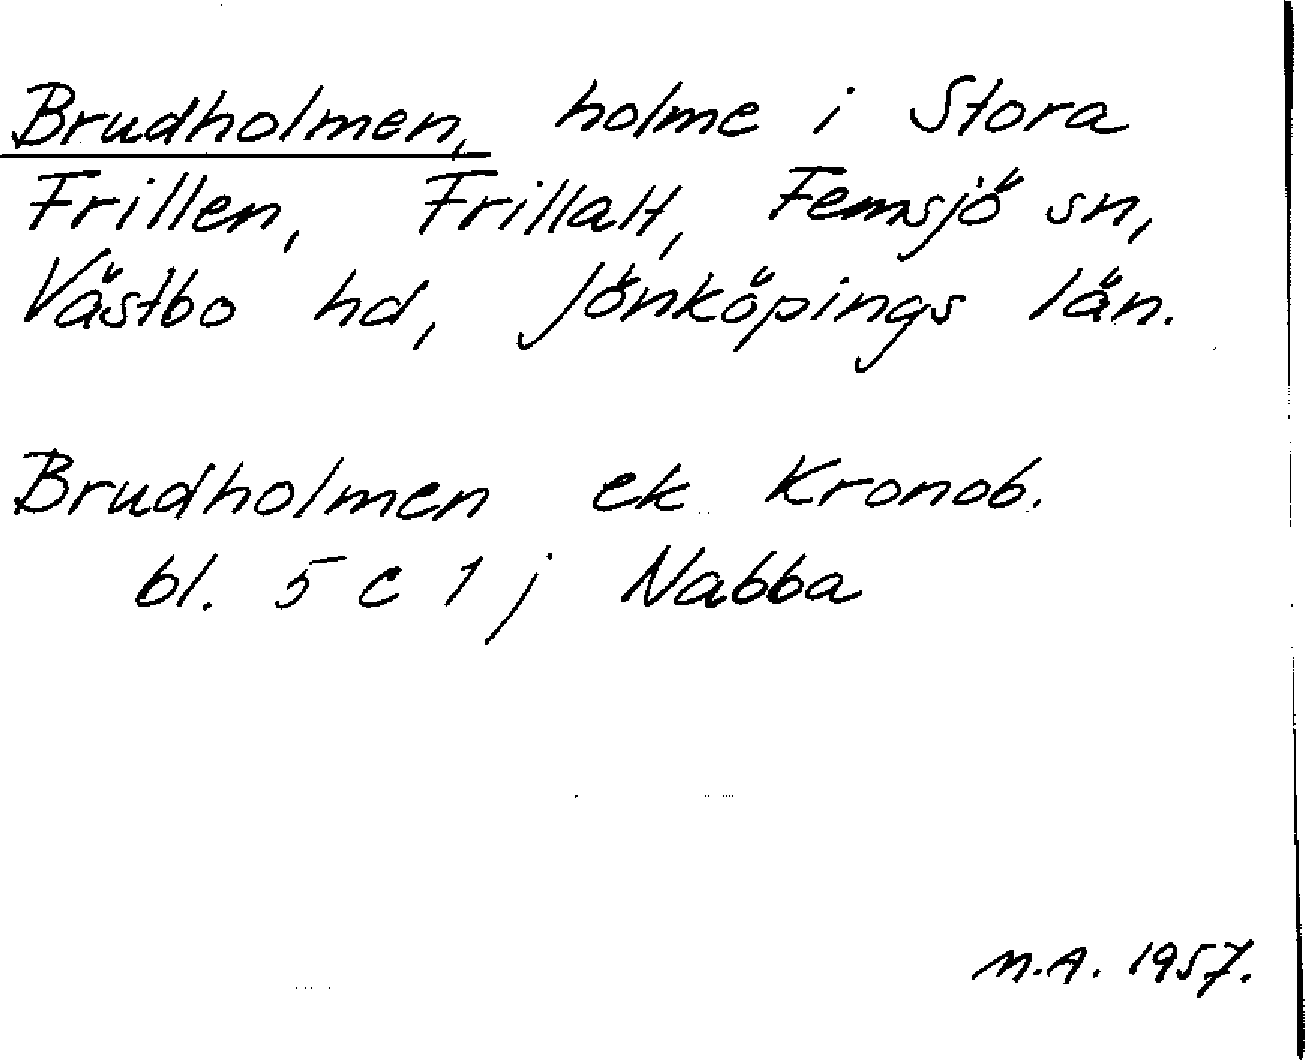 Brudholmen, holme i Stora
Frillen, Frillalt, Femsjö sn,
Västbo hd, Jönköpings län.
Brudholmen ek Kronob.
bl. 5 c 1 j Nabba
M.A. 1957.